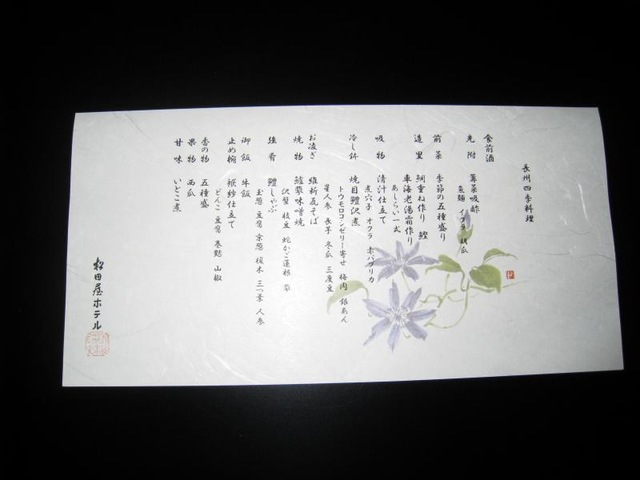 長州四季料理
食前酒
先附 蓴菜吸酢
魚麺 イクラ 胡瓜
前菜 季節の五種盛り
造里 鯛重ね作り 鰹
車海老湯霜作り
あしらい一式
吸物 清汁仕立て
煮穴子 オクラ 赤パプリカ
冷し鉢 焼目鱧沢煮
トウモロコシゼリー寄せ 梅肉 銀あん
星人参 長芋 冬瓜 三度豆
お凌ぎ 維新瓦そば
焼物 味噌焼
沢蟹 枝豆 蛇かご蓮根
強肴 鱧しゃぶ
玉葱 豆腐 京葱 榎木 三つ葉 人参
御飯 牛飯
止め椀 袱紗仕立て
どんこ 豆腐 巻麩 山椒
香の物 五種盛
果物 西瓜
甘味 いとこ煮
松田屋ホテル